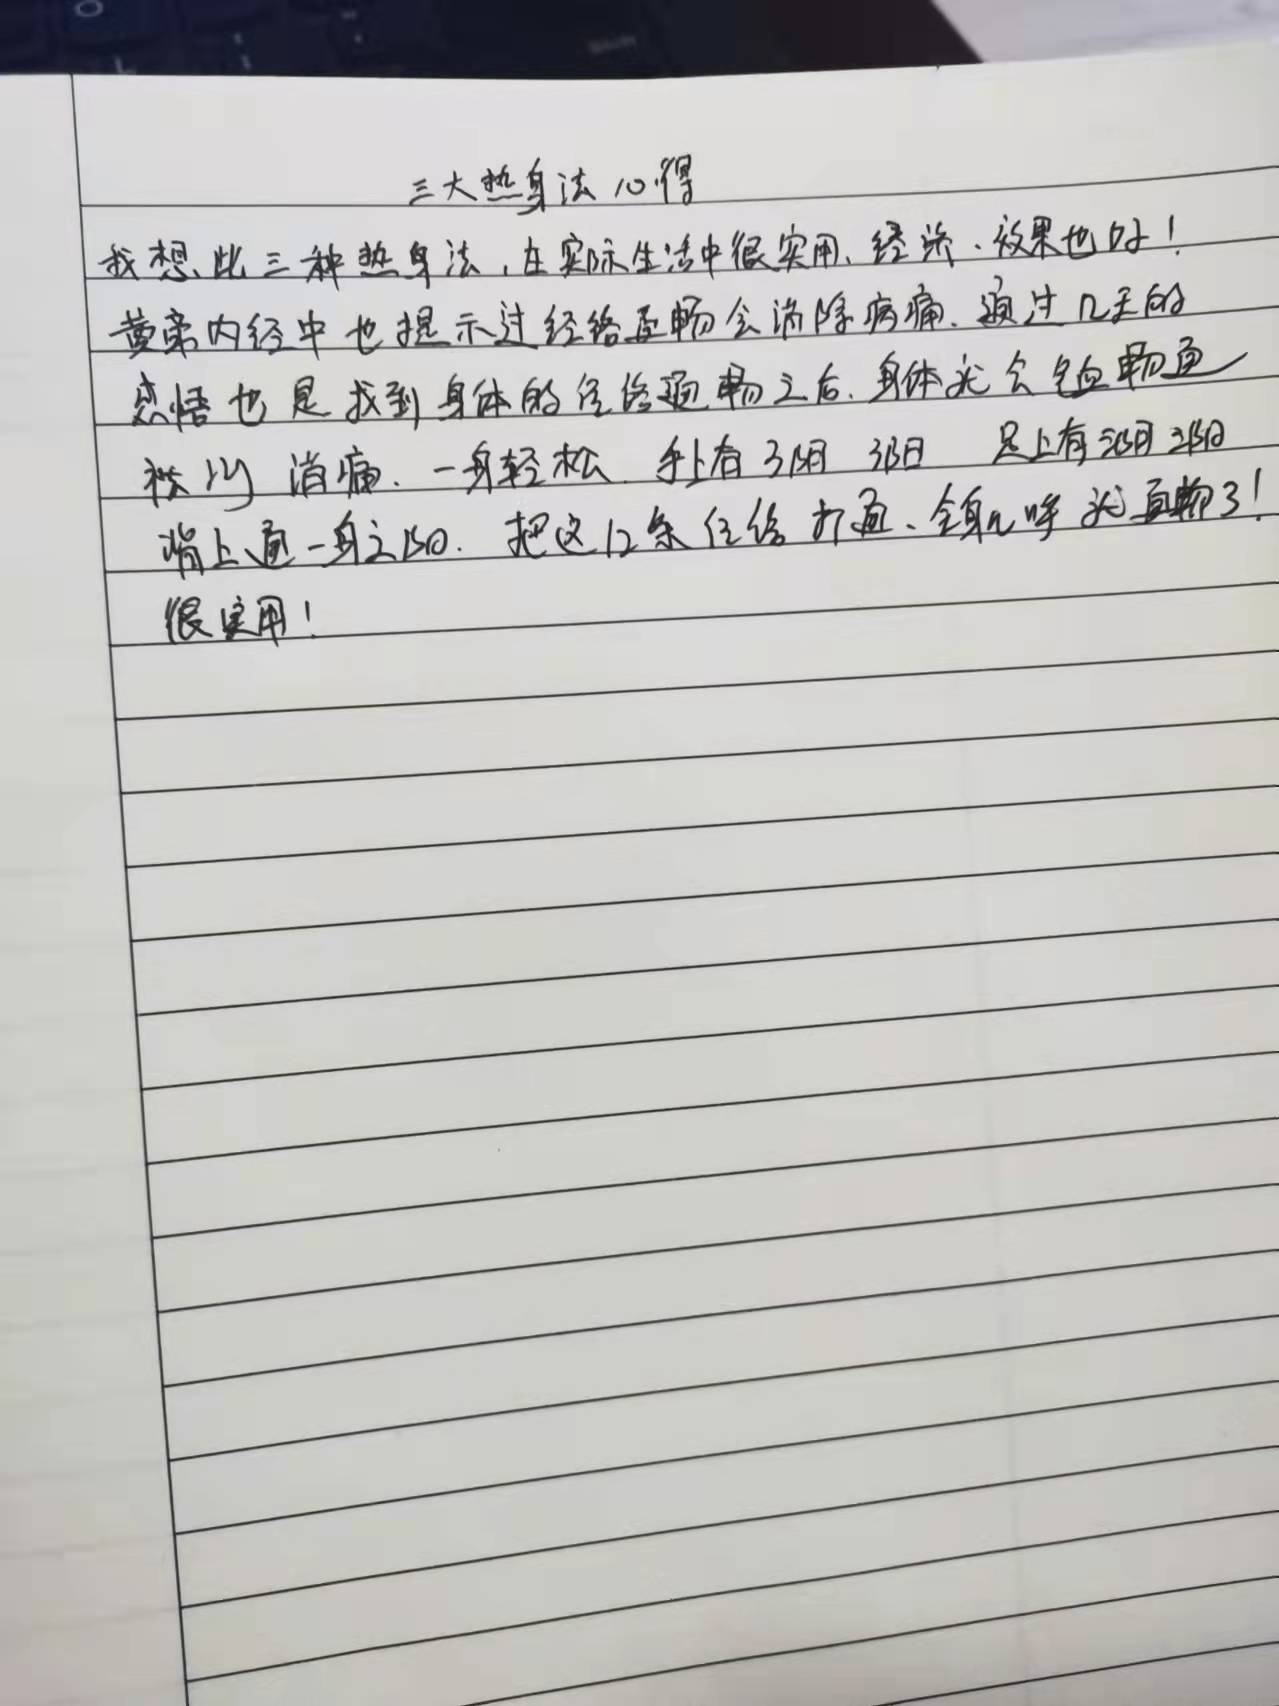 三大热身法心得
我想、此三种热身法,在实际生活中很实用、经济、效果也好!
黄帝内经中也提示过经络通畅会消除病痛、通过几天的
感悟也是找到身体的经络通畅之后、身体就会气血畅通
消痛、一身轻松、手上有3阴 3阳 足上有3阴3阳
背上通一身之阳、把这12条经络打通、全身几乎就通畅了!
很实用!